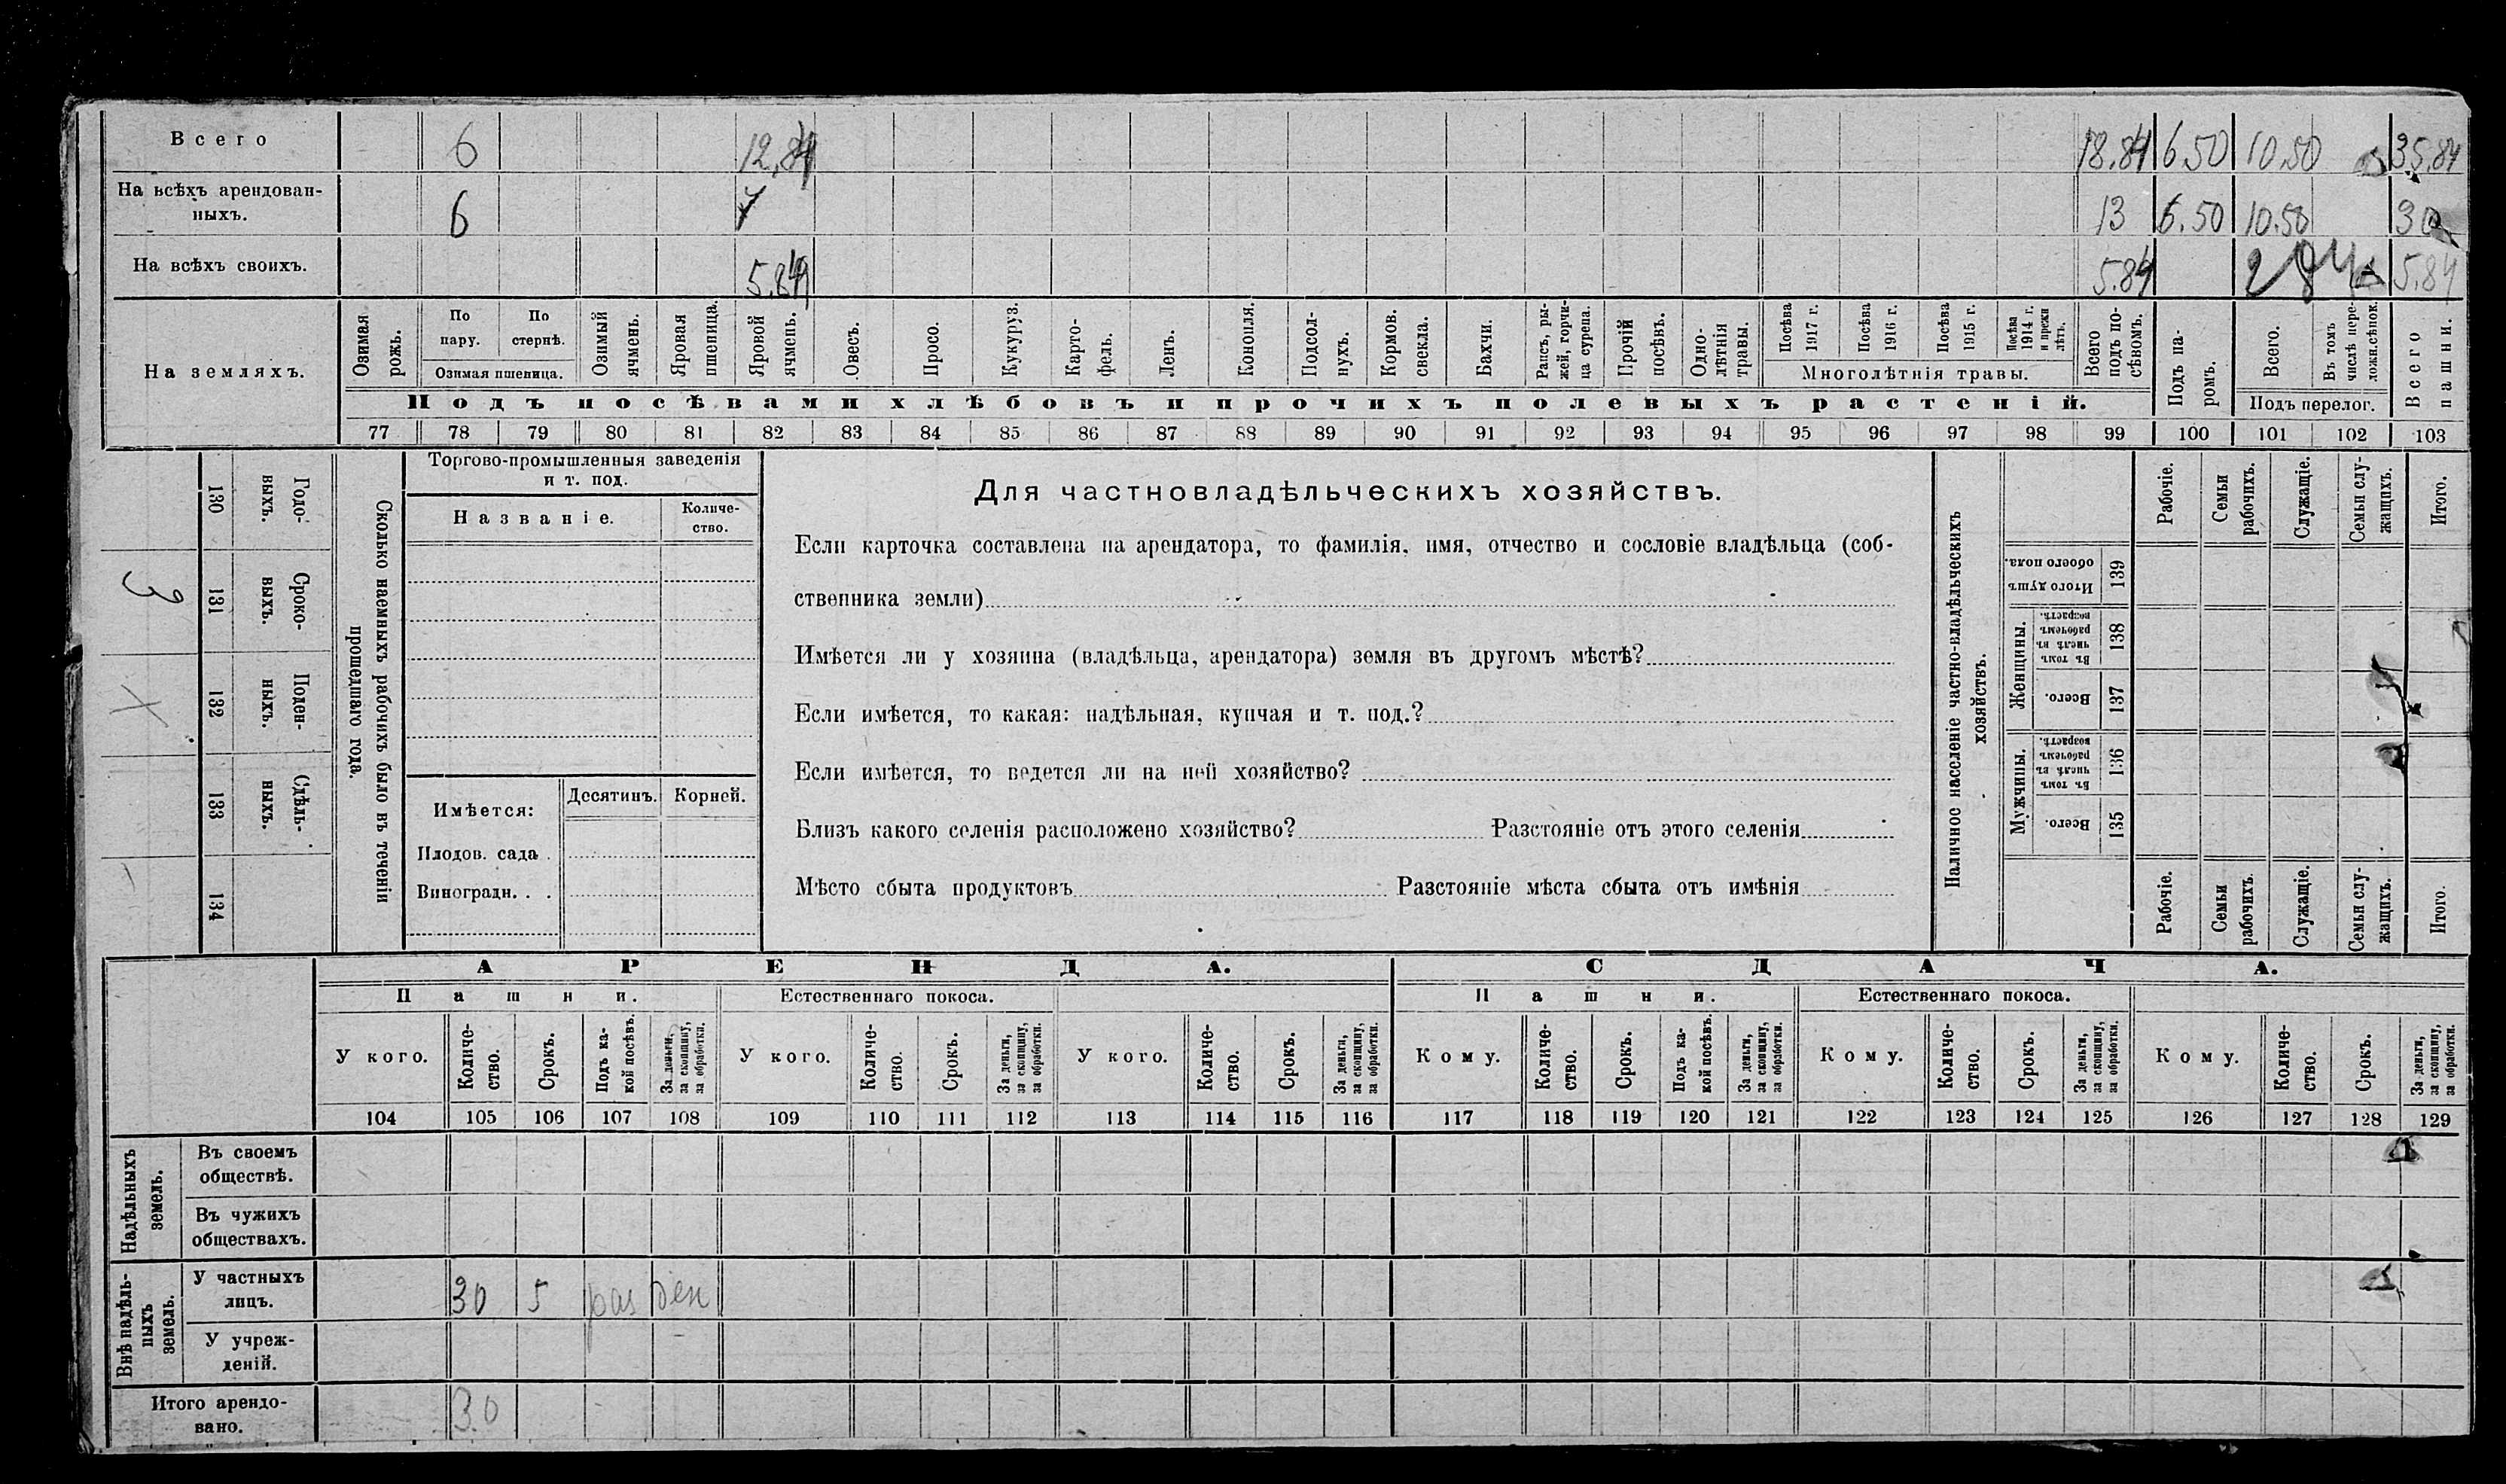 Всего 6 12,84 18.84 6.50 10.50 35.84
На всѣхъ арендован-
ныхъ. 6 7 13 6.50 10.50 30
На всѣхъ своихъ. 5.84 5.84 5.84
На земляхъ.
Озимая рожь.
По пару.
По стернѣ.
Озимая пшеница.
Озимый ячмень.
Яровая пшеница.
Яровой ячмень.
Овесъ.
Просо.
Кукуруз.
Карто-
фель.
Ленъ.
Конопля.
Подсол-
нухъ.
Кормов. свекла.
Бахчи.
Рапсъ, ры-
жей, горчи-
ца сурепа.
Прочій посѣвъ.
Одно-
лѣтнія травы.
Посѣва 1917 г.
Посѣва 1916 г.
Посѣва 1915 г.
Посѣва 1914 г. и прежн лѣтъ.
Многолѣтнія травы.
Всего подъ по-
сѣвомъ.
Подъ па-
ромъ.
Всего.
Въ томъ числѣ пере-
ложн.сѣнок.
Подъ перелог.
Всего пашни.
Подъ посѣвами хлѣбовъ и прочихъ полевыхъ растеній.
77 78 79 80 81 82 83 84 85 86 87 88 89 90 91 92 93 94 95 96 97 98 99 100 101 102 103
Сколько наемныхъ рабочихъ было въ теченіи
прошедшаго года.
Годо-
выхъ.
130
Сроко-
выхъ.
131
3
Поден-
ныхъ.
132
Сдѣль-
ныхъ.
133
134
Торгово-промышленныя заведенія
и т. под.
Названіе.
Количе-
ство.
Имѣется:
Десятинъ.
Корней.
Плодов. сада .
Виноградн. . .
Для частновладѣльческихъ хозяйствъ.
Если карточка составлена на арендатора, то фамилія, имя, отчество и сословіе владѣльца (соб-
ственника земли)
Имѣется ли у хозяина (владѣльца, арендатора) земля въ другомъ мѣстѣ?
Если имѣется, то какая: надѣльная, купчая и т. под.?
Если имѣется, то ведется ли на ней хозяйство?
Близъ какого селенія расположено хозяйство? Разстояніе отъ этого селенія
Мѣсто сбыта продуктовъ Разстояніе мѣста сбыта отъ имѣнія
Наличное населеніе частно-владѣльческихъ
хозяйствъ.
Рабочіе.
Семьи рабочихъ.
Служащіе.
Семьи слу-
жащихъ.
Итого.
Итого душъ обоего пола.
139
Женщины.
Въ томъ числѣ въ рабочемъ возрастѣ.
138
Всего.
137
Мужчины.
Въ томъ числѣ въ рабочемъ возрастѣ.
136
Всего.
135
Рабочіе.
Семьи рабочихъ.
Служащіе.
Семьи слу-
жащихъ.
Итого.
АРЕНДА. СДАЧА.
Пашни. Естественнаго покоса. Пашни. Естественнаго покоса.
У кого.
Количе-
ство.
Срокъ.
Подъ ка-
кой посѣвъ.
За деньги, за скопщину, за обработки.
У кого.
Количе-
ство.
Срокъ.
За деньги, за скопщину, за обработки.
У кого.
Количе-
ство.
Срокъ.
За деньги, за скопщину, за обработки.
Кому.
Количе-
ство.
Срокъ.
Подъ ка-
кой посѣвъ.
За деньги, за скопщину, за обработки.
Кому.
Количе-
ство.
Срокъ.
За деньги, за скопщину, за обработки.
Кому.
Количе-
ство.
Срокъ.
За деньги, за скопщину, за обработки.
104 105 106 107 108 109 110 111 112 113 114 115 116 117 118 119 120 121 122 123 124 125 126 127 128 129
Надѣльныхъ
земель.
Въ своемъ
обществѣ.
Въ чужихъ
обществахъ.
Внѣ надѣль-
ныхъ
земель.
У частныхъ
лицъ. 30 5 раз ден
У учреж-
деній.
Итого арендо-
вано. 30